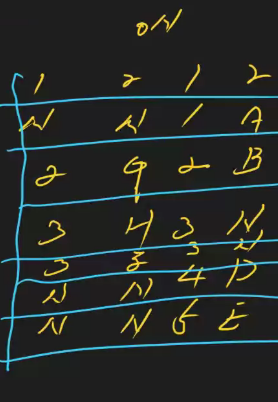 ON
1 2 1 2
N N 1 A
2 9 2 B
3 4 3 N
3 3 3 N
N N 4 D
N N 5 E